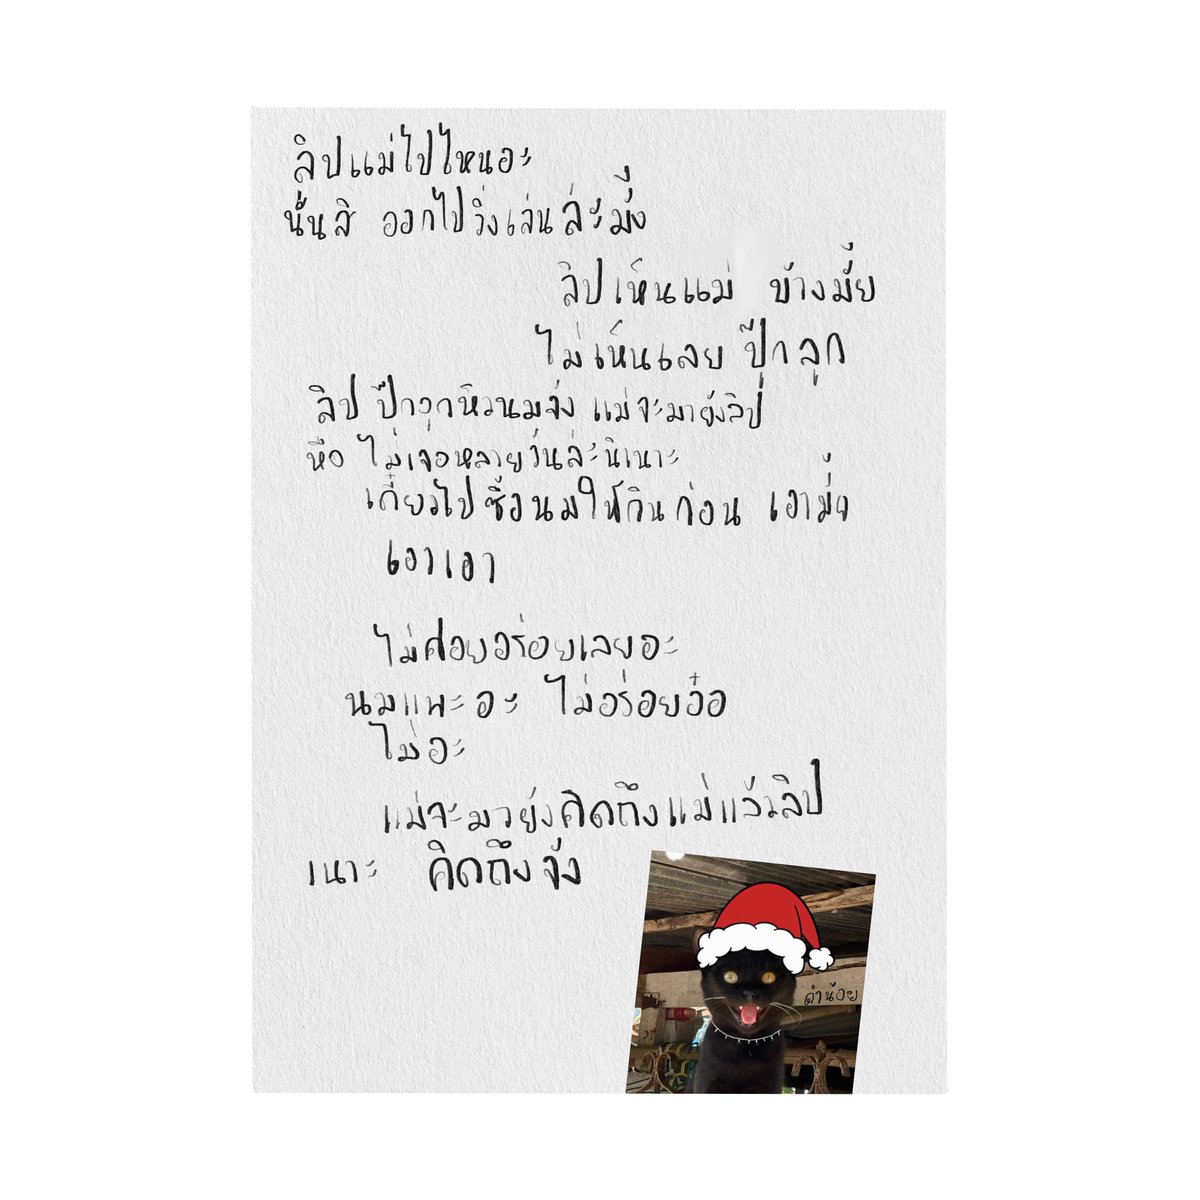 ลิปแม่ไปไหนอะ
นั่นสิ ออกไปวิ่งเล่นล่ะมั้ง
ลิปเห็นแม่ บ้างมั้ย
ไม่เห็นเลย ปุ๊กลุก
ลิป ปุ๊กลุกหิวนมจัง แม่จะมายังลิป
หือ ไม่เจอหลายวันล่ะนิเนาะ
เดี๋ยวไปซื้อนมให้กินก่อน เอามั้ย
เอาเอา
ไม่ค่อยอร่อยเลยอะ
นมแพะอะ ไม่อร่อยอ๋อ
ไม่อะ
แม่จะมายังคิดถึงแม่แล้วลิป
เนาะ คิดถึงจัง
ดำน้อย